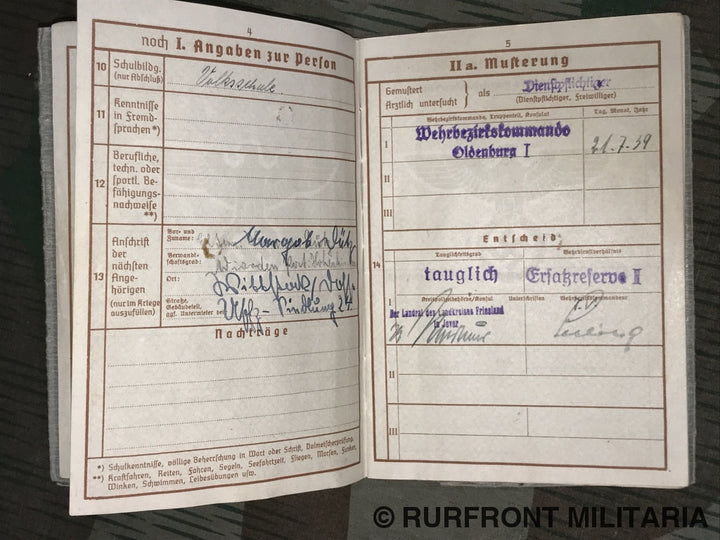 4
noch I. Angaben zur Person
10 Schulbildg. (nur Abschluß)
Volksschule.
11 Kenntnisse in Fremdsprachen *)
12 Berufliche, techn. oder sportl. Befähigungsnachweise **)
13 Anschrift der nächsten Angehörigen (nur im Kriege auszufüllen)
Vor- und Zuname:
Verwandtschaftsgrad:
Ort:
Straße, Gebäudeteil, ggf. Untermieter bei
Nachträge
*) Schulkenntnisse, völlige Beherrschung in Wort oder Schrift, Dolmetscherprüfung.
**) Kraftfahren, Reiten, Fahren, Segeln, Seefahrtzeit, Fliegen, Morsen, Funken,
Winken, Schwimmen, Leibesübungen usw.
5
II a. Musterung
Gemustert
Ärztlich untersucht
als
Dienstpflichtiger
(Dienstpflichtiger, Freiwilliger)
Wehrbezirkskommando, Truppenteil, Konsulat
Tag, Monat, Jahr
I
Wehrbezirkskommando
Oldenburg I
21.7.39
II
III
Entscheid
14
Tauglichkeitsgrad
Wehrdienstverhältnis
tauglich
Ersatzreserve II
I
Kreispolizeibehörde/Konsul
Unterschriften
Der Landrat des Landkreises Friesland
in Jever
II
III
© RURFRONT MILITARIA